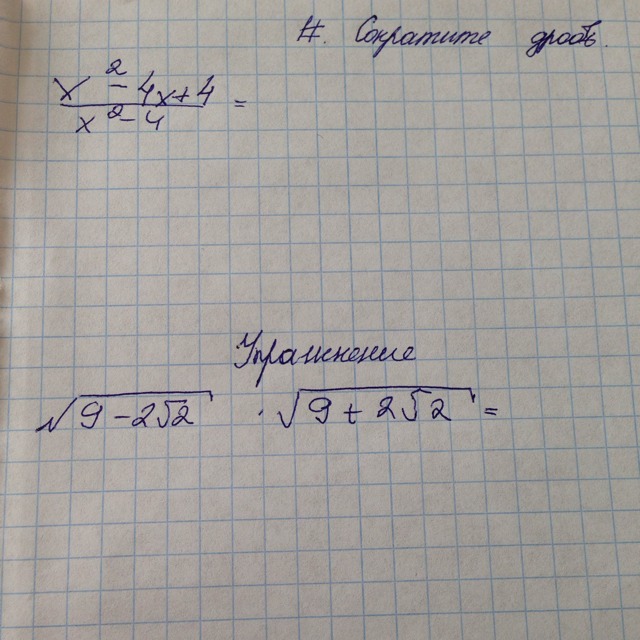 #. Сократите дробь.
x² - 4x + 4
x² - 4 =
Упражнение
√9 - 2√2 · √9 + 2√2 =